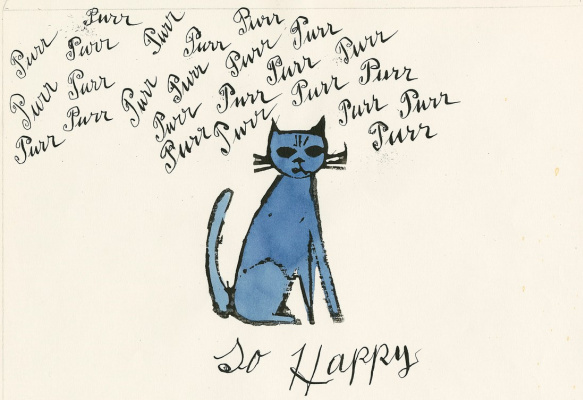 Purr Purr Purr Purr Purr
Purr Purr Purr Purr Purr Purr
Purr Purr Purr Purr Purr Purr Purr Purr
Purr Purr Purr Purr Purr
Purr
So Happy